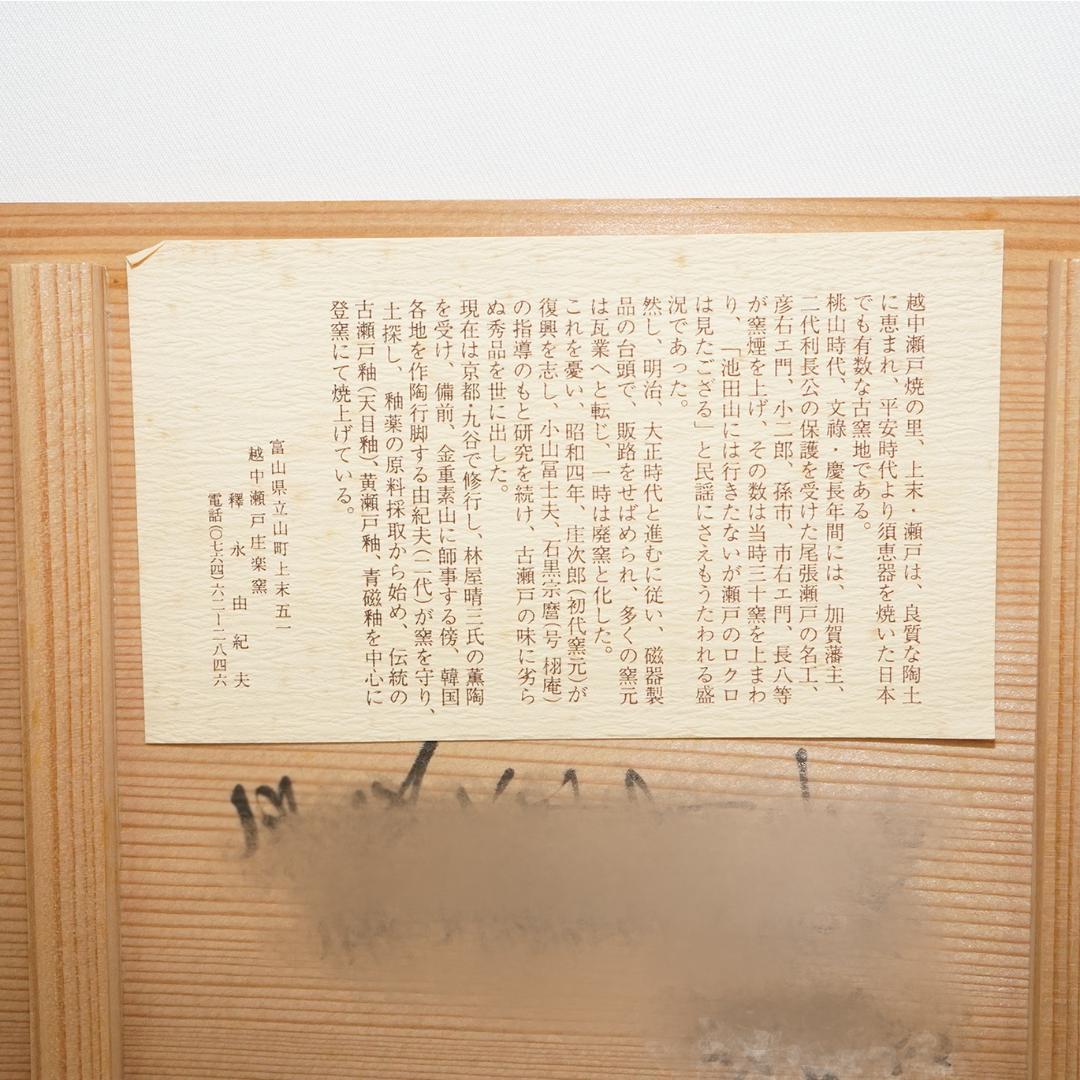 越中瀬戸焼の里、上末・瀬戸は、良質な陶土
に恵まれ、平安時代より須恵器を焼いた日本
でも有数な古窯地である。
桃山時代、文祿・慶長年間には、加賀藩主、
二代利長公の保護を受けた尾張瀬戸の名工、
彦右エ門、小二郎、孫市、市右エ門、長八等
が窯煙を上げ、その数は当時三十窯を上まわ
り、「池田山には行きたないが瀬戸のロクロ
は見たござる」と民謡にさえもうたわれる盛
況であった。
然し、明治、大正時代と進むに従い、磁器製
品の台頭で、販路をせばめられ、多くの窯元
は瓦業へと転じ、一時は廃窯と化した。
これを憂い、昭和四年、庄次郎(初代窯元)が
復興を志し、小山冨士夫、石黒宗麿(号 栩庵)
の指導のもと研究を続け、古瀬戸の味に劣ら
ぬ秀品を世に出した。
現在は京都・九谷で修行し、林屋晴三氏の薫陶
を受け、備前、金重素山に師事する傍、韓国
各地を作陶行脚する由紀夫(二代)が窯を守り、
土探し、釉薬の原料採取から始め、伝統の
古瀬戸釉(天目釉)、黄瀬戸釉、青磁釉を中心に
登窯にて焼上げている。
富山県立山町上末五一
越中瀬戸庄楽窯
釋永由紀夫
電話(〇七六四)六二ー二八四六